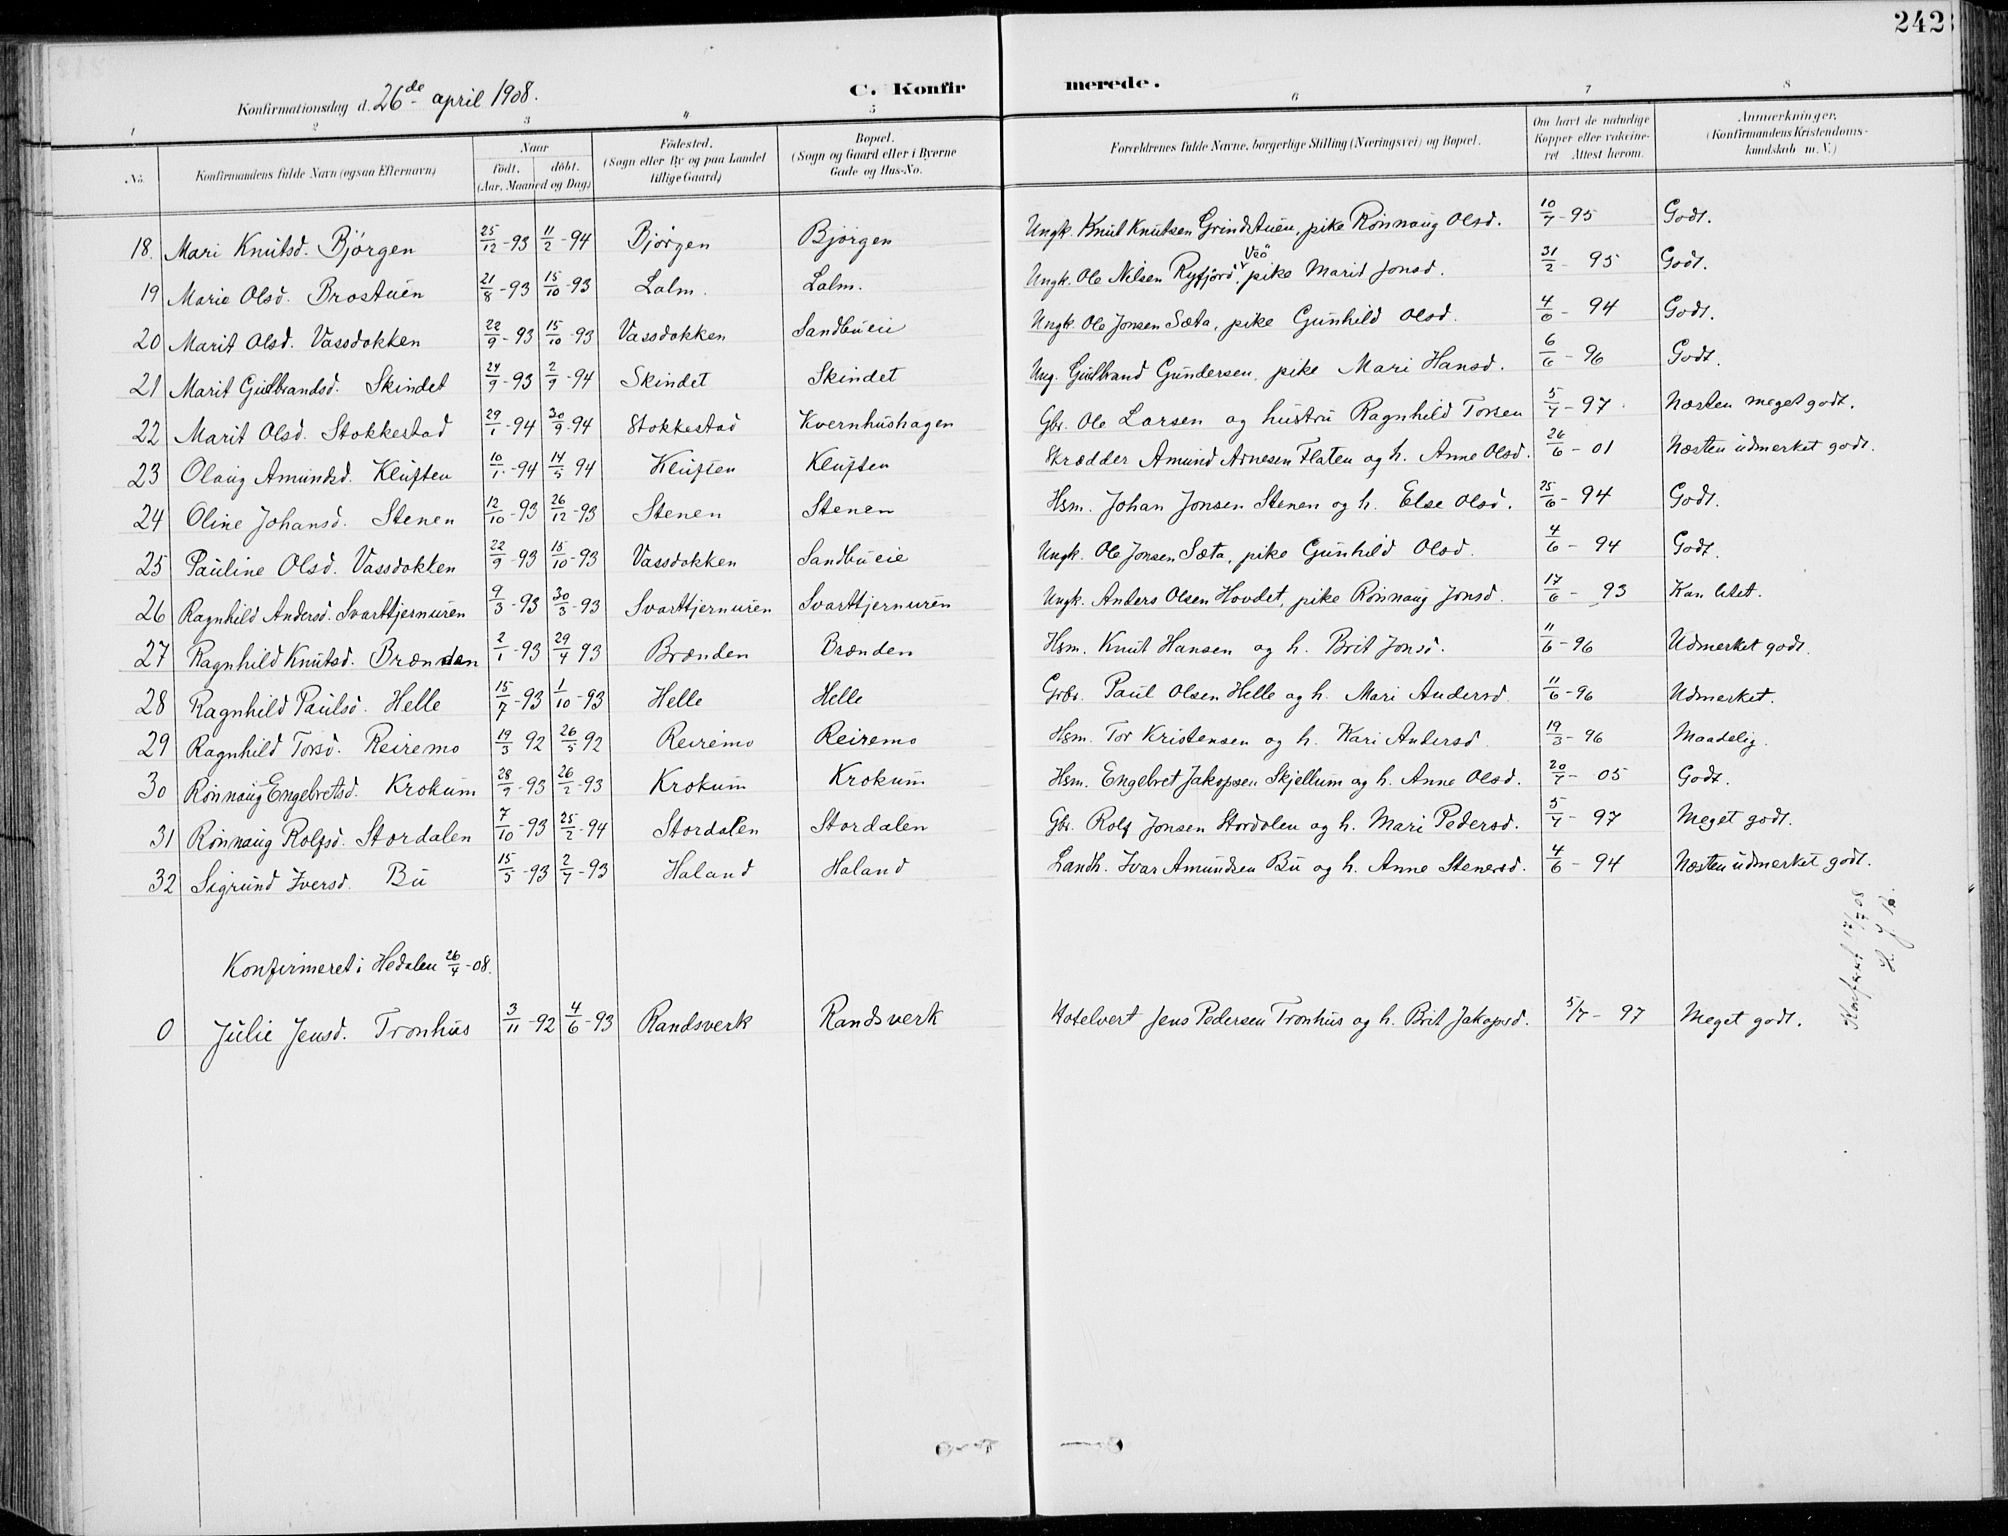 242
Konfirmationsdag d. 26de april 1908. C. Konfirmerede.
1 2 3 4 5 6 7 8
No. Konfirmandens fulde Navn (ogsaa Efternavn) Naar født, døbt. (Aar, Maaned og Dag) Fødested. (Sogn eller By og paa Landet tillige Gaard) Bopæl. (Sogn og Gaard eller i Byerne Gade og Hus-No. Forældrenes fulde Navne, borgerlige Stilling (Næringsvei) og Bopæl. Om havt de naturlige Kopper eller vakcineret Attest herom. Anmerkninger. (Konfirmandens Kristendomskundskab m. V.)
18. Mari Knutsd. Bjørgen 25/12-93 11/2-94 Bjørgen Bjørgen Ungk. Knut Knutsen Grindstuen, pike Rønnaug Olsd. 10/7-95 Godt.
19 Marie Olsd. Brostuen 21/8-93 15/10-93 Lalm. Lalm. Ungk. Ole Nilsen Ryfjord Veö, pike Marit Jonsd. 31/2-95 Godt.
20 Marit Olsd. Vassdokken 22/9-93 15/10-93 Vassdokken Sandbueie Ungk. Ole Jonsen Sæta, pike Gunhild Olsd. 4/6-94 Godt.
21 Marit Gudbrandsd. Skindet 24/9-93 2/9-94 Skindet Skindet Ung. Gudbrand Gundersen, pike Mari Hansd. 6/6-96 Godt.
22 Marit Olsd. Stokkestad 29/1-94 30/9-94 Stokkestad Kvernhushagen Gbr. Ole Larsen og hustru Ragnhild Torsen 5/7-97. Næsten meget godt.
23 Olaug Amundsd. Kluften 10/1-94 14/5 94 Kluften Kluften Skrædder Amund Arnesen Flaten og h. Anne Olsd. 26/6-01 Næsten udmerket godt.
24 Oline Johansd. Stenen 12/10-93 26/12-93 Stenen Stenen Hsm. Johan Jonsen Stenen og h. Else Olsd. 25/6-94 Godt.
25 Pauline Olsd. Vassdokken 22/9-93 15/10-93 Vassdokken Sandbueie Ungk. Ole Jonsen Sæta, pike Gunhild Olsd. 4/6-94 Godt.
26 Ragnhild Andersd. Svarttjernuren 9/3-93 30/3-93 Svarttjernuren Svarttjernuren Ungk. Anders Olsen Hovdet, pike Rønnaug Jonsd. 17/6-93 Kan litet.
27 Ragnhild Knutsd. Brænden 2/1-93 29/4 93 Brænden Brænden Hsm. Knut Hansen og h. Brit Jonsd. 11/6-96 Udmerket godt.
28 Ragnhild Paulsd. Helle 15/7-93 1/10-93 Helle Helle Grbr. Paul Olsen Helle og h. Mari Andersd. 11/6-96 Udmerket.
29 Ragnhild Torsd. Reiremo 19/3 92 26/5 92 Reiremo Reiremo Hsm. Tor Kristensen og h. Kari Andersd. 19/3-96 Maadelig.
30 Rønnaug Engebretsd. Krokum 28/9-93 26/2-93 Krokum Krokum Hsm. Engebret Jakopsen Skjellum og h. Anne Olsd. 20/7-05 Godt.
31 Rønnaug Rolfsd. Stordalen 7/10-93 25/2-94 Stordalen Stordalen Gbr. Rolf Jonsen Stordalen og h. Mari Pedersd. 5/7-97 Meget godt.
32 Sigrund Iversd. Bu 15/5-93 2/7-93 Haland Haland Landh. Ivar Amundsen Bu og h. Anne Stenersd. 4/6-94 Næsten udmerket godt.
Konfirmeret i Hedalen 26/4-08.
0 Julie Jensd. Tronhus 3/11-92 4/6-93 Randsverk Randsverk Hotelvert Jens Pedersen Tronhus og h. Brit Jakopsd. 5/7-97 Meget godt.
17/7 08